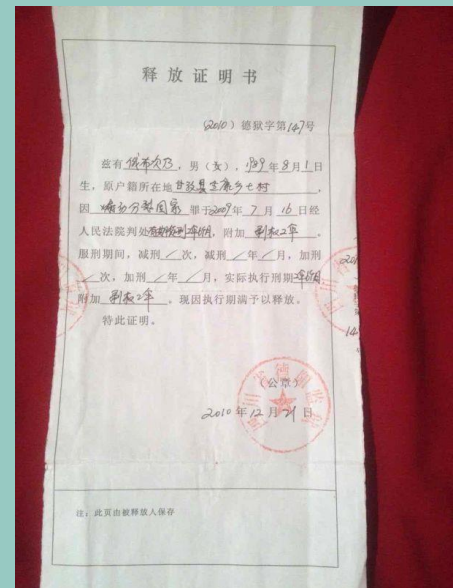 释放证明书
(2010)德狱字第147号
兹有 依布次乃,男(女),1989年8月1日
生,原户籍所在地甘孜县生康乡七村,
因 煽动分裂国家 罪于2009年7月16日经
人民法院判处有期徒刑2年6月,附加 剥权2年。
服刑期间,减刑/次,减刑/年/月,加刑
/次,加刑/年/月,实际执行刑期
附加 剥权2年。现因执行期满予以释放。
特此证明。
(公章)
2010年12月21日
注:此页由被释放人保存